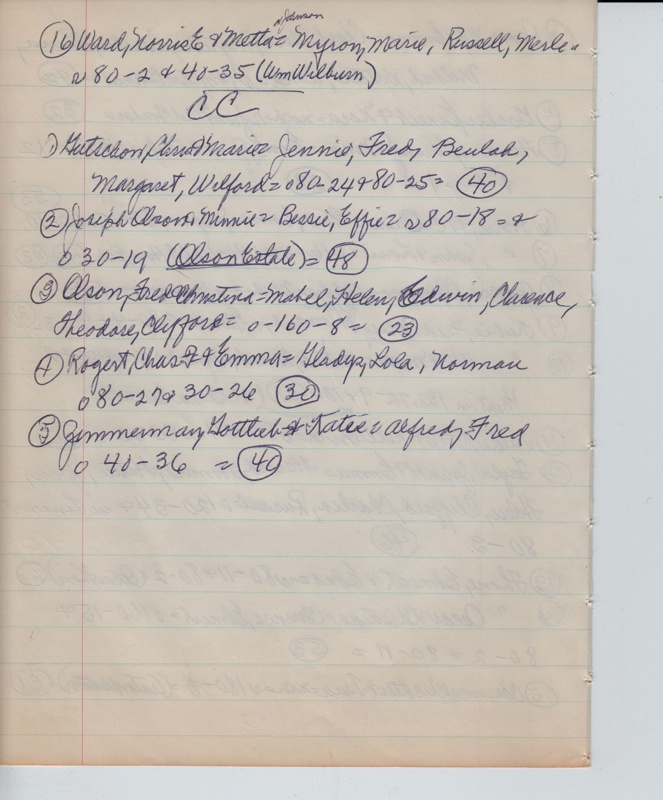 Johnson
(16) Ward, Norris E & Metta = Myron, Marie, Russell, Merle =
r 80-2 & 40-35 (Wm Wilburn)
CC
1) Gutschon, Chris & Marie = Jennie, Fred, Beulah,
Margaret, Wilford = o 80-24 & 80-25 = (40)
(2) Joseph Olson, Minnie = Bessie, Effie = r 80-18 = &
o 30-19 (Olson Estate) = (48)
(3) Olson, Fred & Christina = Mabel, Helen, Edwin, Clarence,
Theodore, Clifford = o-160-8 = (23)
(4) Rogert, Chas F & Emma = Gladys, Lola, Norman
o 80-27 & 30-26 (30)
(5) Zimmerman, Gottlieb & Katie = Alfred, Fred
o 40-36 = (40)